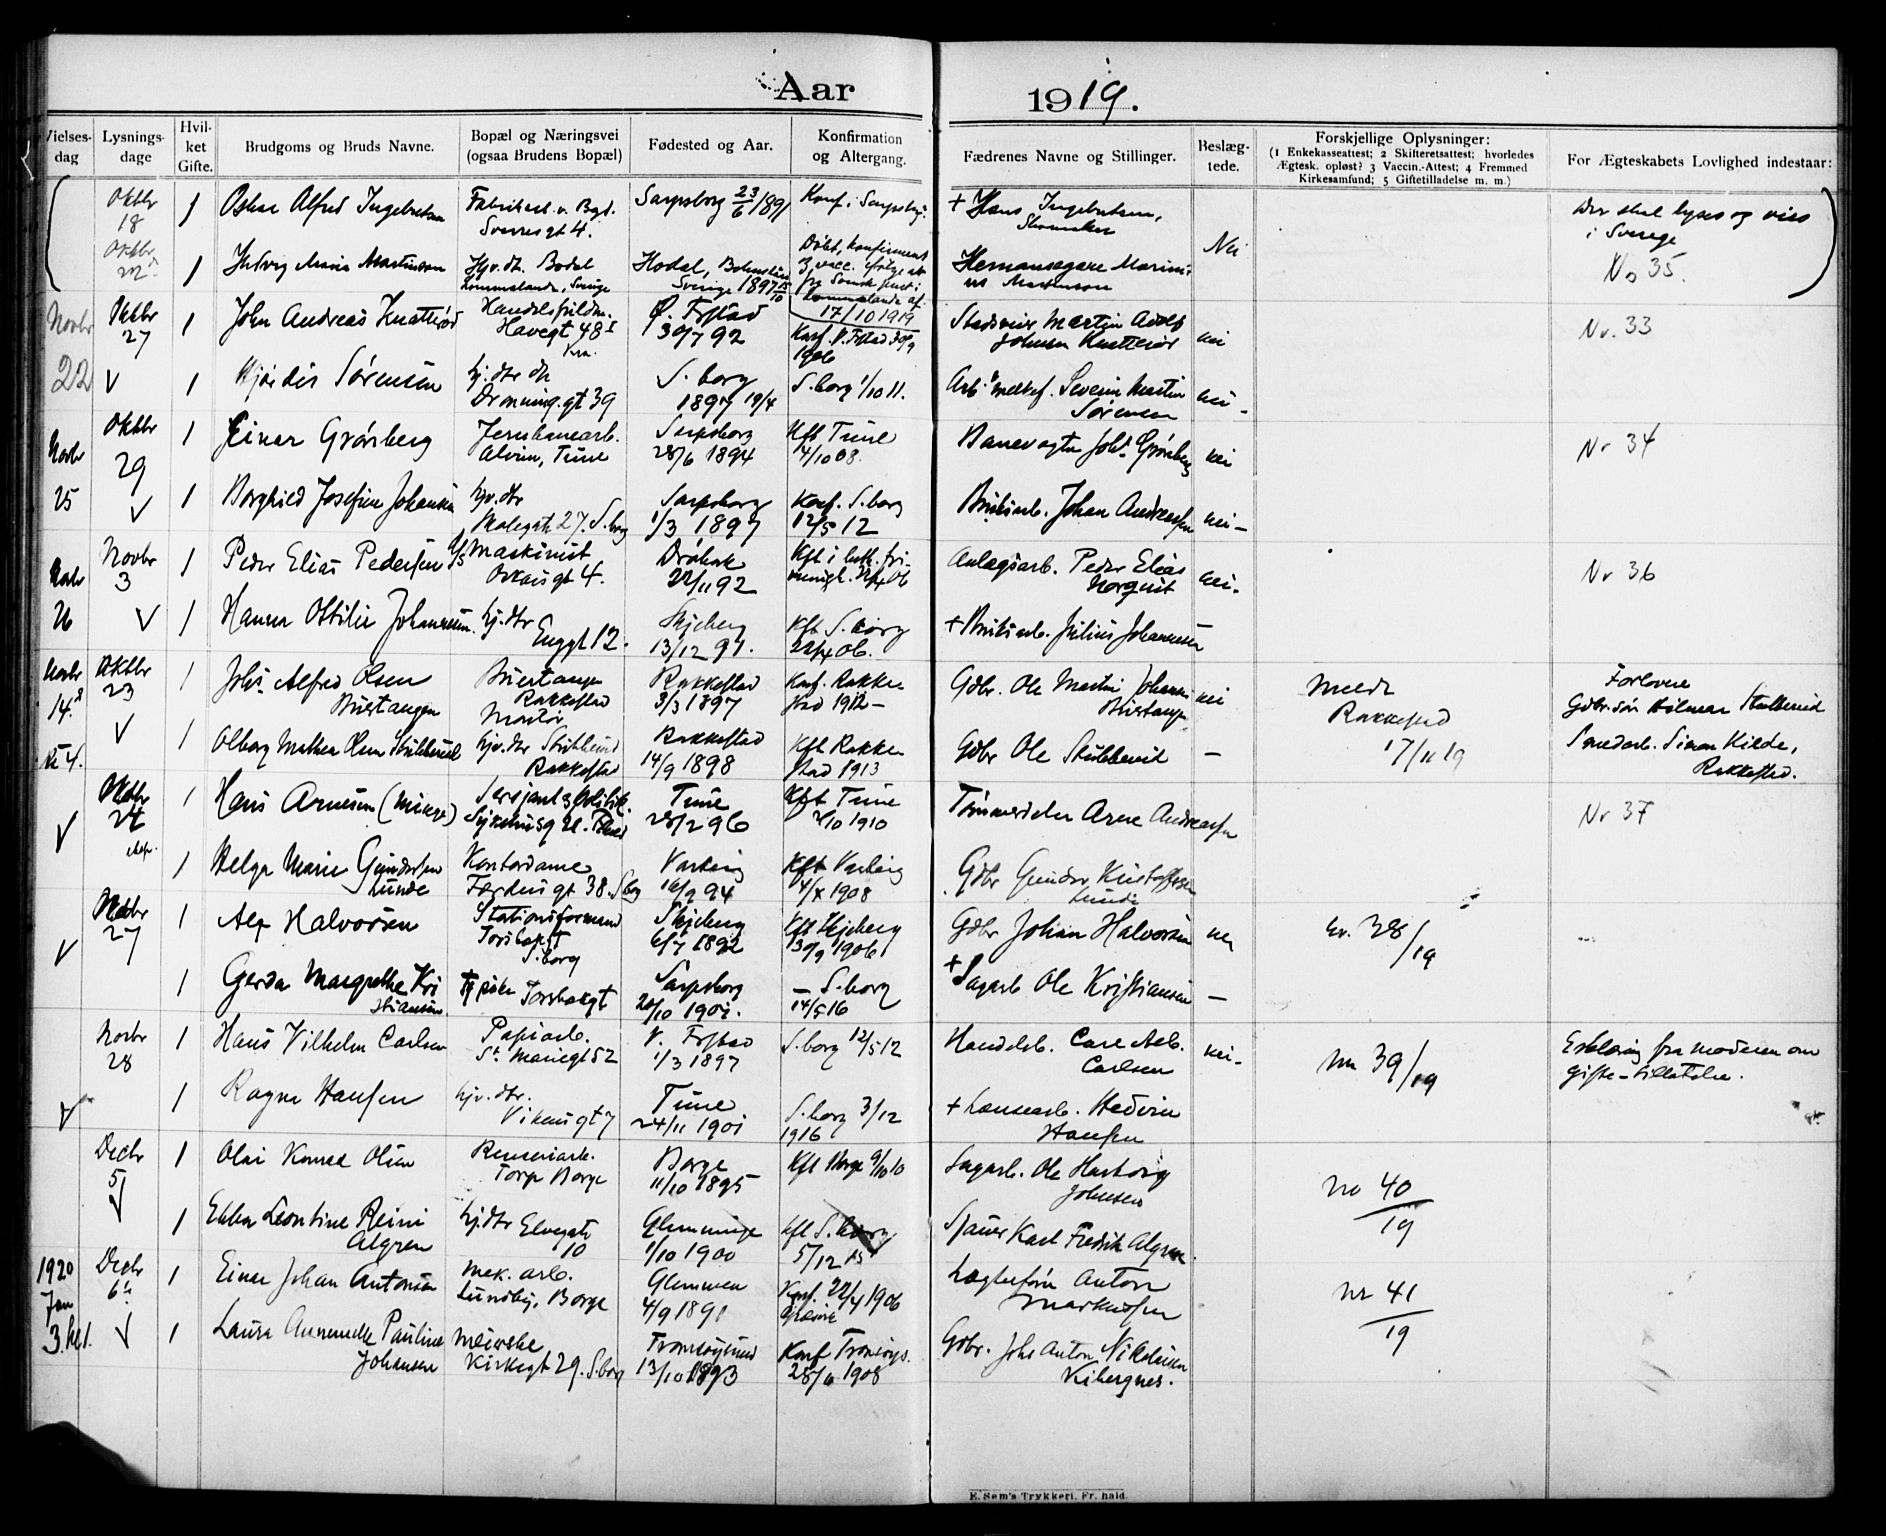 Aar 1919.
Vielses-dag
Lysnings-dage
Hvil-ket Gifte.
Brudgoms og Bruds Navne.
Bopæl og Næringsvei
(ogsaa Brudens Bopæl)
Fødested og Aar.
Konfirmation
og Altergang.
Fædrenes Navne og Stillinger.
Beslæg-tede.
Forskjellige Oplysninger:
(1 Enkekasseattest; 2 Skifteretsattest; hvorledes
Ægtesk. opløst? 3 Vaccin.-Attest; 4 Fremmed
Kirkesamfund; 5 Giftetilladelse m. m.)
For Ægteskabets Lovlighed indestaar:
Oktbr 18
1
Oskar Alfred Ingebretsen
Fabrikarb. v. Bgd.
Sverresgt 4.
Sarpsborg 23/6 1891
Konf. i Sarpsbg.
+ Hans Ingebretsen,
Skomaker
Nei
Der skal lyses og vies
i Sverige
No 35.
Oktbr 22
1
Hedvig Maria Martinsson
Hjv. dt.
Sverige
Sverige 1897 15/10
Døbt, konfirmeret
17/10 1919
Hemansegare
Novbr 22
Oktbr 27
1
John Andreas Knatterød
Havegt 48 I
Kra.
Ø. Frstad
30/7 92
Konf. V. Frstad 30/9
1906
Martin Adolf
Johnsen Knatterød
nei
Nr. 33
V
1
Hjørdis Sørensen
hj. dtr
Dronning.gt 39
S. borg
1897 19/4
S. borg 1/10 11.
Severin Martin
Sørensen
nei -
Novbr 25
Oktbr 29
V
1
Einar Grønberg
Jernbanearb.
Alvim, Tune
Sarpsborg
28/6 1894
Kft Tune
4/10 08.
Banevogter Johs Grønberg
nei
Nr 34
1
Borghild Josefine Johansen
hjv. dtr
Skolegt 27. S. borg
Sarpsborg
1/3 1897
Konf. S. borg
12/5 12
Bruksarb. Johan Andreassen
nei -
Novbr 26
Novbr 3
V
1
Peder Elias Pedersen
Maskinist
Oskarsgt 4.
Drøbak
22/11 92
Kft i luth. fri-
Anlægsarb. Peder Elias
nei.
Nr 36
1
Hanna Ottilie Johannessen.
hj. dtr
Enggt 12.
Skjeberg
13/12 91.
Kft S. borg
22/4 06.
+ Bruksarb. Julius Johannessen
Novbr 14.
kl 4.
Oktbr 23
V
1
Johs Alfred Olsen
Buertangen
Buertangen
Rakkestad
Rakkestad
3/3 1897
Konf. Rakke-
stad 1912 -
Gdbr. Ole Martin Johansen
nei
Meldt
Rakkestad
17/11 19
Forlovere
Gdbr.søn Hilmar Stubberud
Simen Kilde,
Rakkestad.
1
Olborg Mathea Olsen Stubberud
hjv. dtr Stubberud
Rakkestad
Rakkestad
14/9 1898
Kft Rakke-
stad 1913
Gdbr Ole Stubberud
-
V
Oktbr 27
1
Hans Arnesen (Minge)
Sersjant & Politik.
Tune
28/2 96
Kft Tune
2/10 1910
Arne Andreassen
Nr 37
1
Helga Marie Gundersen
Lunde
Kontordame
Færdensgt 38. S. borg
Varteig
16/9 94
Kft Varteig
4/X 1908
Gdbr Gunder Kristoffersen
Lunde
V
Oktbr 27
1
Alf Halvorsen
Stationsformand
Torsbækgt
S. borg
Skjeberg
6/7 1892
Kft Skjeberg
30/9 1906
Gdbr Johan Halvorsen
nei
nr. 38/19
1
Gerda Margrethe Kri
stiansen
Torsbækgt
Sarpsborg
20/10 1901.
- S. borg
14/5 16
+ Sagarb Ole Kristiansen
-
V
Novbr 28
1
Hans Vilhelm Carlsen
Papirarb.
St. Mariegt 52
V. Frstad
1/3 1897
S. borg 12/5 12
Handelsb. Carl Alb.
Carlsen
nei -
Nr 39/19
Erklæring fra moderen om
gifte-tillatelse.
1
Ragna Hansen
hjv. dtr.
Vikensgt 7
Tune
24/11 1901
S. borg 3/12
1916
+ Hedvin
Hansen
Decbr 5
V
1
Olai Konrad Olsen
Renseriarb.
Torp Borge
Borge
11/10 1895
Kft Borge 9/10 10
Sagarb. Ole
Johnsen
No 40/19
1
Ebba Leontine Reini
Algren
hj. dtr Elvegt
10
Glemminge
1/10 1900
Kft S. borg
5/12 15
Sjauer Karl Fredrik Algren.
1920
Jan
3. kl 1.
Decbr 6
V
1
Einar Johan Antonsen
Mek. arb.
Lundby, Borge
Glemmen
4/9 1891
Konf. 22/4 1906
Anton
Markussen
Nr 41/19
1
Laura Annemelle Pauline
Johansen
Meierske
Kirkegt 29. S. borg
Tromsøysund
13/10 1893
Konf Tromsøys.
28/6 1908
Gdbr. Johs Anton Nikolaisen
Kibergnes.
E. Sem's Trykkeri, Fr. hald.